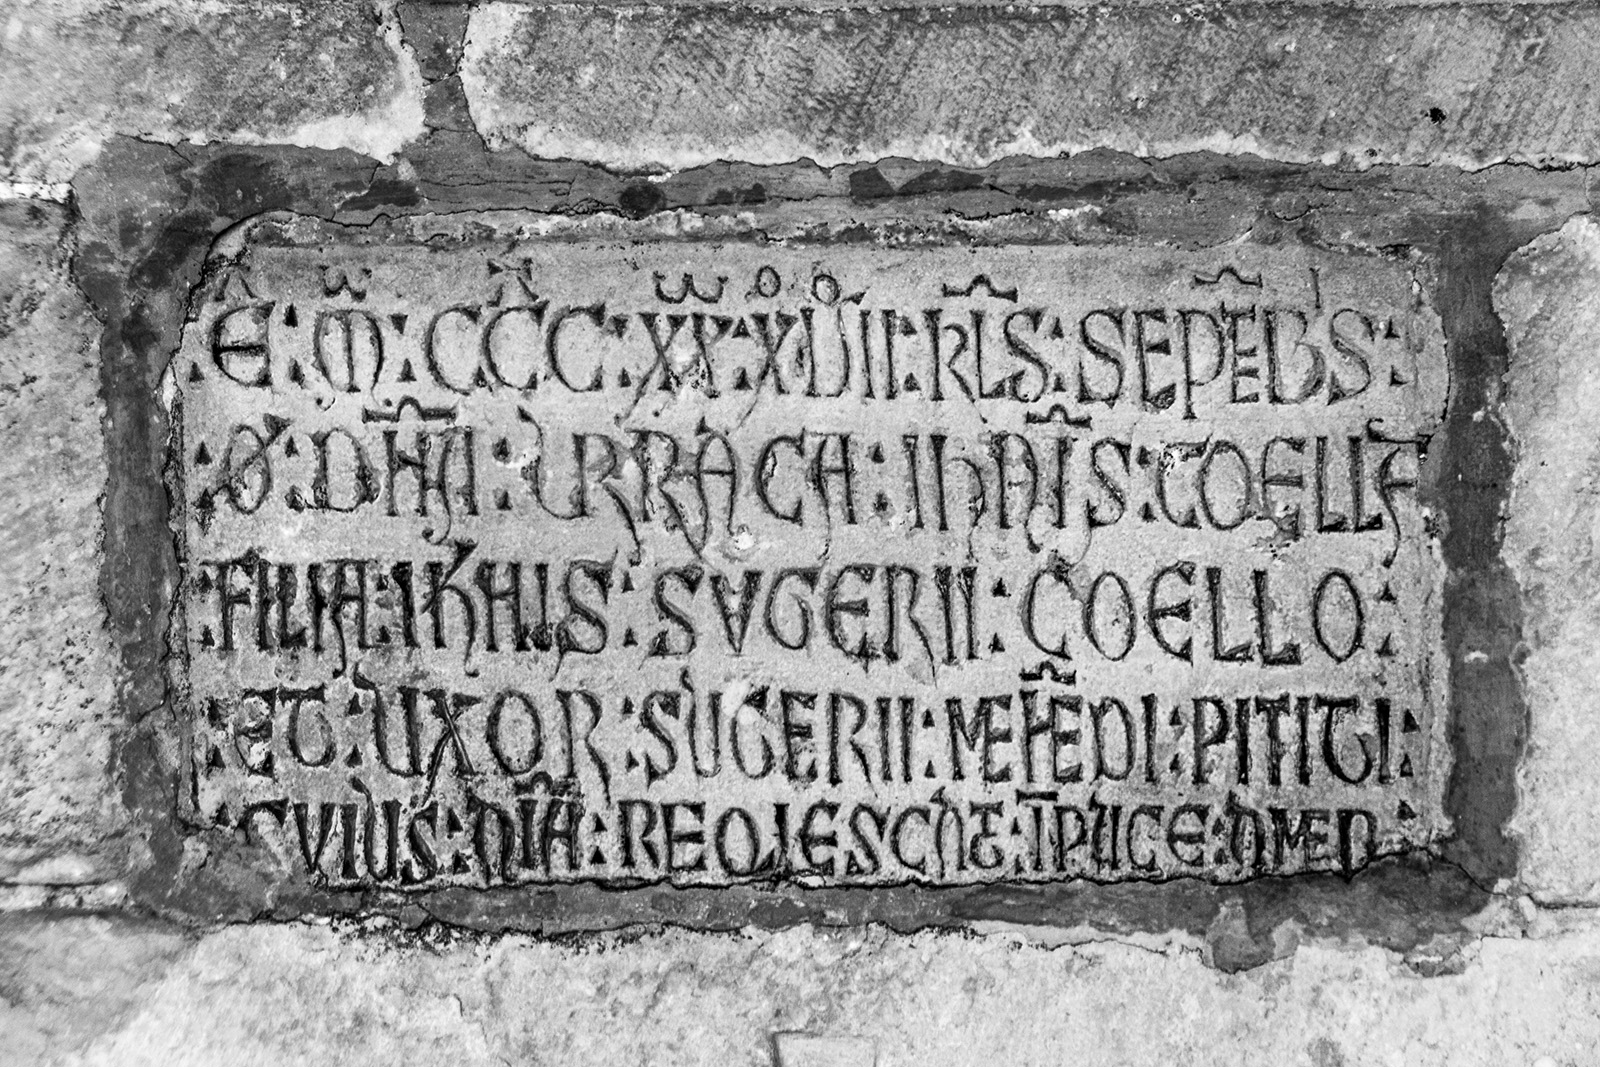 E : M : CCC : XX : XVII : KLS : SEPTEBS :
: O : DNA : URRACA : IHANIS : COELLA
FILIA : IHANIS : SUGERII : COELLO :
: ET : UXOR : SUGERII : MENEDI : PITITI :
: CVIUS : ANIA : REQIESCAT : I PACE : AMEN